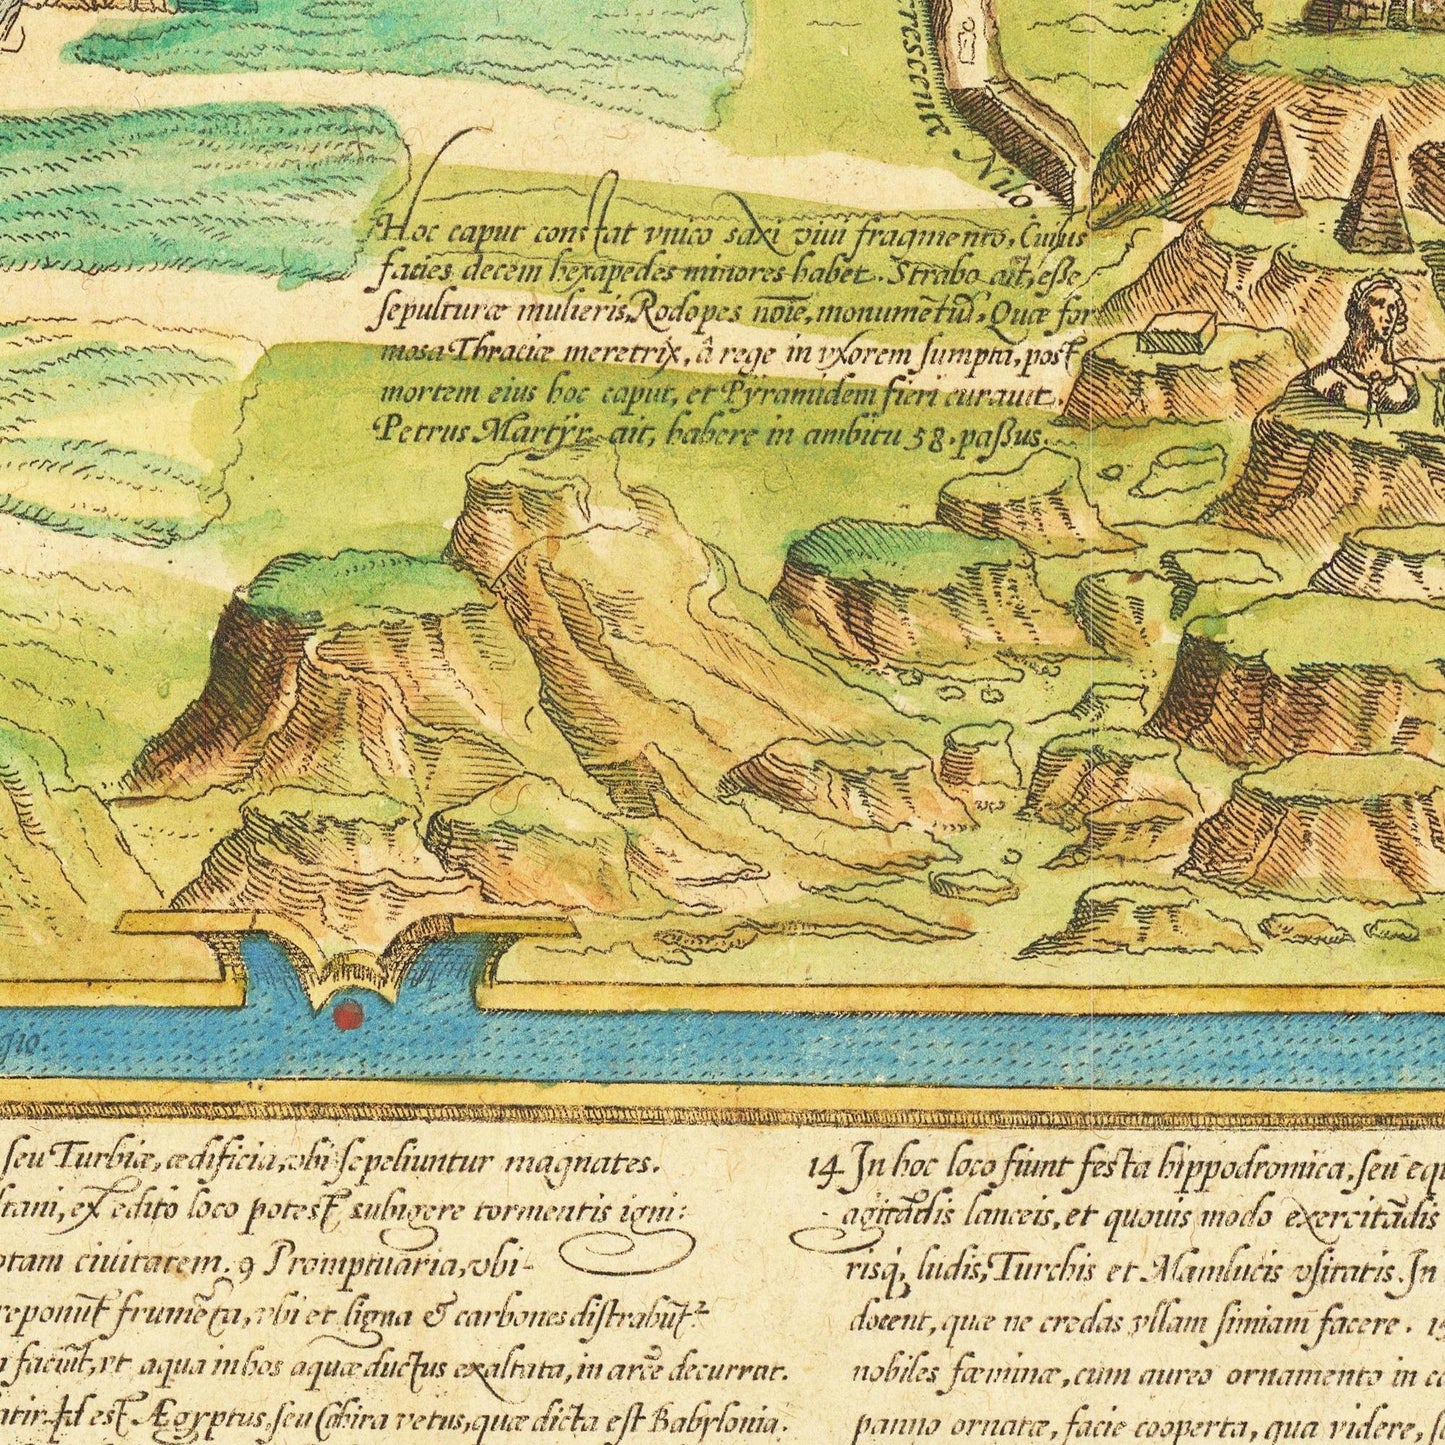 crescent Nilo
Hoc caput constat vnico saxi viui fragmento, Cuius
facies decem hexapedes minores habet. Strabo ait, eße
sepulturæ mulieris, Rodopes noīe, monumētū, Quæ for
mosa Thraciæ meretrix, â rege in vxorem sumpta, post
mortem eius hoc caput, et Pÿramidem fieri curauit.
Petrus Martÿr ait, habere in ambitu 58. paßus.
gio.
seu Turbiæ, ædificia, vbi sepeliuntur magnates.
ltani, ex edito loco potest subigere tormentis igni:
otam ciuitatem. 9 Promptuaria, vbi-
reponūt frumēta, vbi et ligna & carbones distrabūt.
faciūt, vt aqua in hos aquæductus exaltata, in arce decurrat.
est Ægyptus, seu Cahira vetus, quæ dicta est Babylonia.
14 In hoc loco fiunt festa hippodromica, seu equ
agitādis lanceis, et quouis modo exercitādis
risq, ludis, Turchis et Mamlucis vsitatis. In
docent, quæ ne credas vllam simiam facere. 15
nobiles fæminæ, cum aureo ornamento in ca
panno ornatæ, facie cooperta, qua videre, s